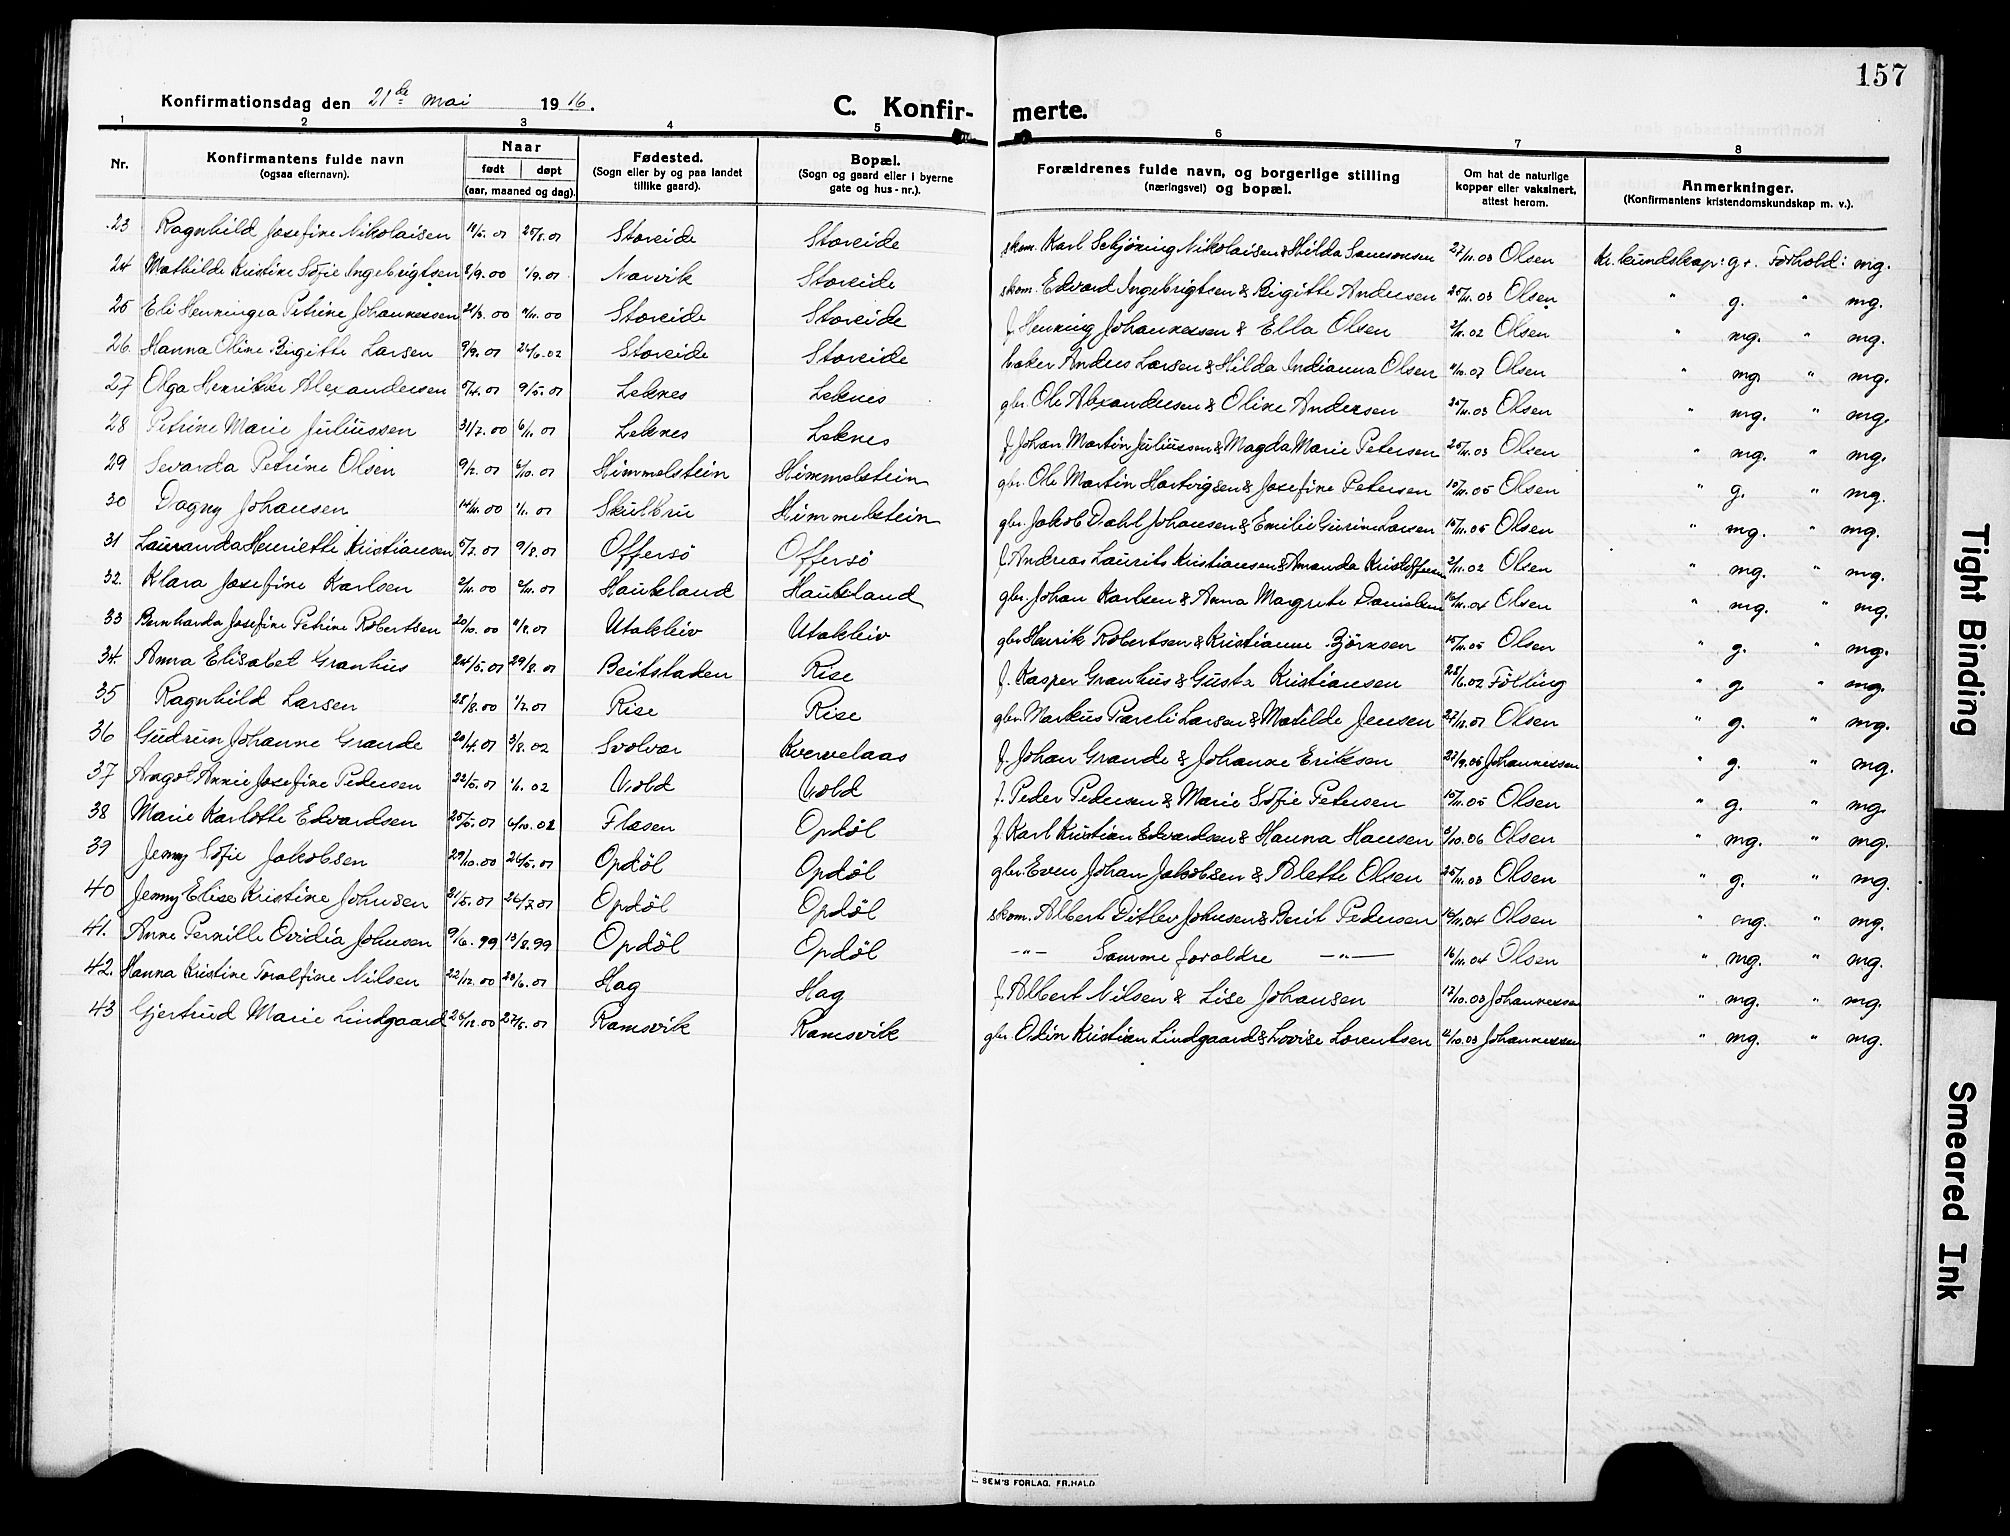 157
Konfirmationsdag den 21de mai 1916. C. Konfir- merte.
1 2 3 4 5 6 7 8
Nr. Konfirmantens fulde navn (ogsaa efternavn). Naar født døpt (aar, maaned og dag). Fødested. (Sogn eller by og paa landet tillike gaard). Bopæl. (Sogn og gaard eller i byerne gate og hus-nr.). Forældrenes fulde navn, og borgerlige stilling (næringsvei) og bopæl. Om hat de naturlige kopper eller vaksinert, attest herom. Anmerkninger. (Konfirmantens kristendomskundskap m. v.).
23 Ragnhild Josefine Nikolaisen 25/8.01 Storeide Storeide skom. Karl Schjöning Nikolaisen & Hilda Samsonsen 27/11.03 Olsen Kr. kundskap: g+. Forhold: mg.
24 Mathilde Kristine Sofie Ingebrigtsen 2/9.00 1/9.01 Narvik Storeide skom. Edvard Ingebrigtsen & Birgitte Andersen 25/11.03 Olsen " g. " mg.
25 Eli Henningea Petrine Johannessen 21/3.00 Storeide Storeide f. Henning Johannessen & Ella Olsen 2/11.02 Olsen " mg. " mg.
26 Hanna Oline Birgitte Larsen 9/9.01 24/6.02 Storeide Storeide baker Anders Larsen & Hilda Indianna Olsen Olsen " mg. " mg.
27 Olga Henrikke Alexandersen 5/4.01 9/5.01 Leknes Leknes gbr. Ole Alexandersen & Oline Andersen 25/11.03 Olsen " mg. " mg.
28 Petrine Marie Juliussen 31/7.00 6/1.01 Leknes Leknes f. Johan Martin Juliussen & Magda Marie Petersen 25/11.03 Olsen " mg. " mg.
29 Sevarda Petrine Olsen 9/2.01 6/10.01 Himmelstein Himmelstein gbr. Ole Martin Hartvigsen & Josefine Petersen 15/11.05 Olsen " g. " mg.
30 Dagny Johansen 14/11.00 1/1.01 Skulbru Himmelstein gbr. Jakob Dahl Johansen & Emilie Gurine Larsen 15/11.05 Olsen " mg. " mg.
31 Lauranda Henriette Kristiansen 5/7.01 9/8.01 Offersö Offersö f. Andreas Laurits Kristiansen & Amanda Kristoffersen 2/11.02 Olsen " mg. " mg.
32. Klara Josefine Karlsen 2/11.00 2/11.01 Haukeland Haukeland gbr. Johan Karlsen & Anna Margrete Danielsen 16/11.04 Olsen " mg. " mg.
33 Bernharda Josefine Petrine Robertsen 20/10.00 Utakleiv Utakleiv gbr. Henrik Robertsen & Kristianne Björnsen 15/11.05 Olsen " g. " mg.
34. Anna Elisabet Granhus 24/5.01 29/8.01 Beitstaden Rise f. Kasper Granhus & Gusta Kristiansen 28/6.02 Fölling " g " mg.
35 Ragnhild Larsen 28/8.00 1/2.01 Rise Rise gbr. Markus Pareli Larsen & Matilde Jensen Olsen " g. " mg.
36 Gudrun Johanne Grande 20/4.01 3/8.02 Svolvær Kvervelaas f. Johan Grande & Johanne Eriksen 27/9.06 Johannessen " g. " mg.
37 Angot Annie Josefine Pedersen 22/5.01 1/1.02 Vold Vold f. Peder Pedersen & Marie Sofie Petersen 15/11.05 Olsen " g. " mg.
38 Marie Karlotte Edvardsen 25/5.01 6/10.02 Flæsen Opdöl f. Karl Kristian Edvardsen & Hanna Hansen 5/10.06 Olsen " mg. " mg.
39 Jenny Sofie Jakobsen 29/10.00 26/5.01 Opdöl Opdöl gbr. Even Johan Jakobsen & Alette Olsen 25/11.03 Olsen " g. " mg.
40 Jenny Elise Kristine Johnsen 21/5.01 26/7.01 Opdöl Opdöl skom. Albert Ditlev Johnsen & Berit Pedersen 16/11.04 Olsen " mg. " mg.
41. Anne Pernille Ovidia Johnsen 9/6.99 13/8.99 Opdöl Opdöl —"— Samme foreldre —"— 16/11.04 Olsen " mg. " mg.
42. Hanna Kristine Toralfine Nilsen 22/12.00 23/6.01 Hag Hag f. Albert Nilsen & Lise Johansen 17/10.03 Johannessen " mg. " mg.
43 Gjertrud Marie Lindgaard 26/12.00 27/5.01 Ramsvik Ramsvik gbr. Odin Kristian Lindgaard & Lovise Lorentsen Johannessen " mg. " mg.
SEM'S FORLAG, FR. HALD
Tight Binding
Smeared Ink